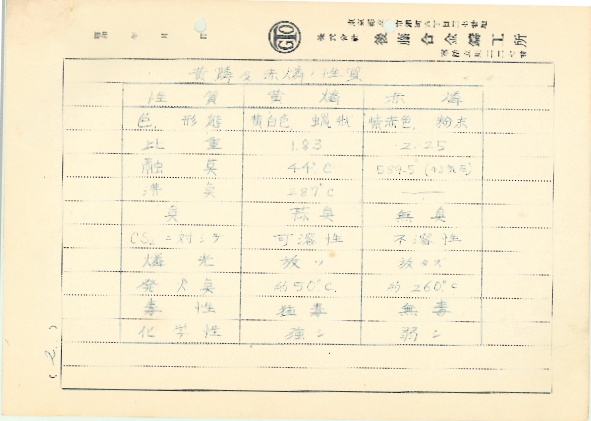 昭和 年 月 日
株式会社 後藤合金鋳工所
黄燐及赤燐ノ性質
性質 黄燐 赤燐
色、形態 黄白色 蝋状 紫赤色、粉末
比重 1.83 2.25
融臭 44°C 589.5
沸臭 287°C ―
臭 蒜臭 無臭
CS₂ニ対シテ 可溶性 不溶性
燐光 放ツ 放タズ
発火臭 約50°C. 約260°C
毒性 猛毒 無毒
化学性 強シ 弱シ